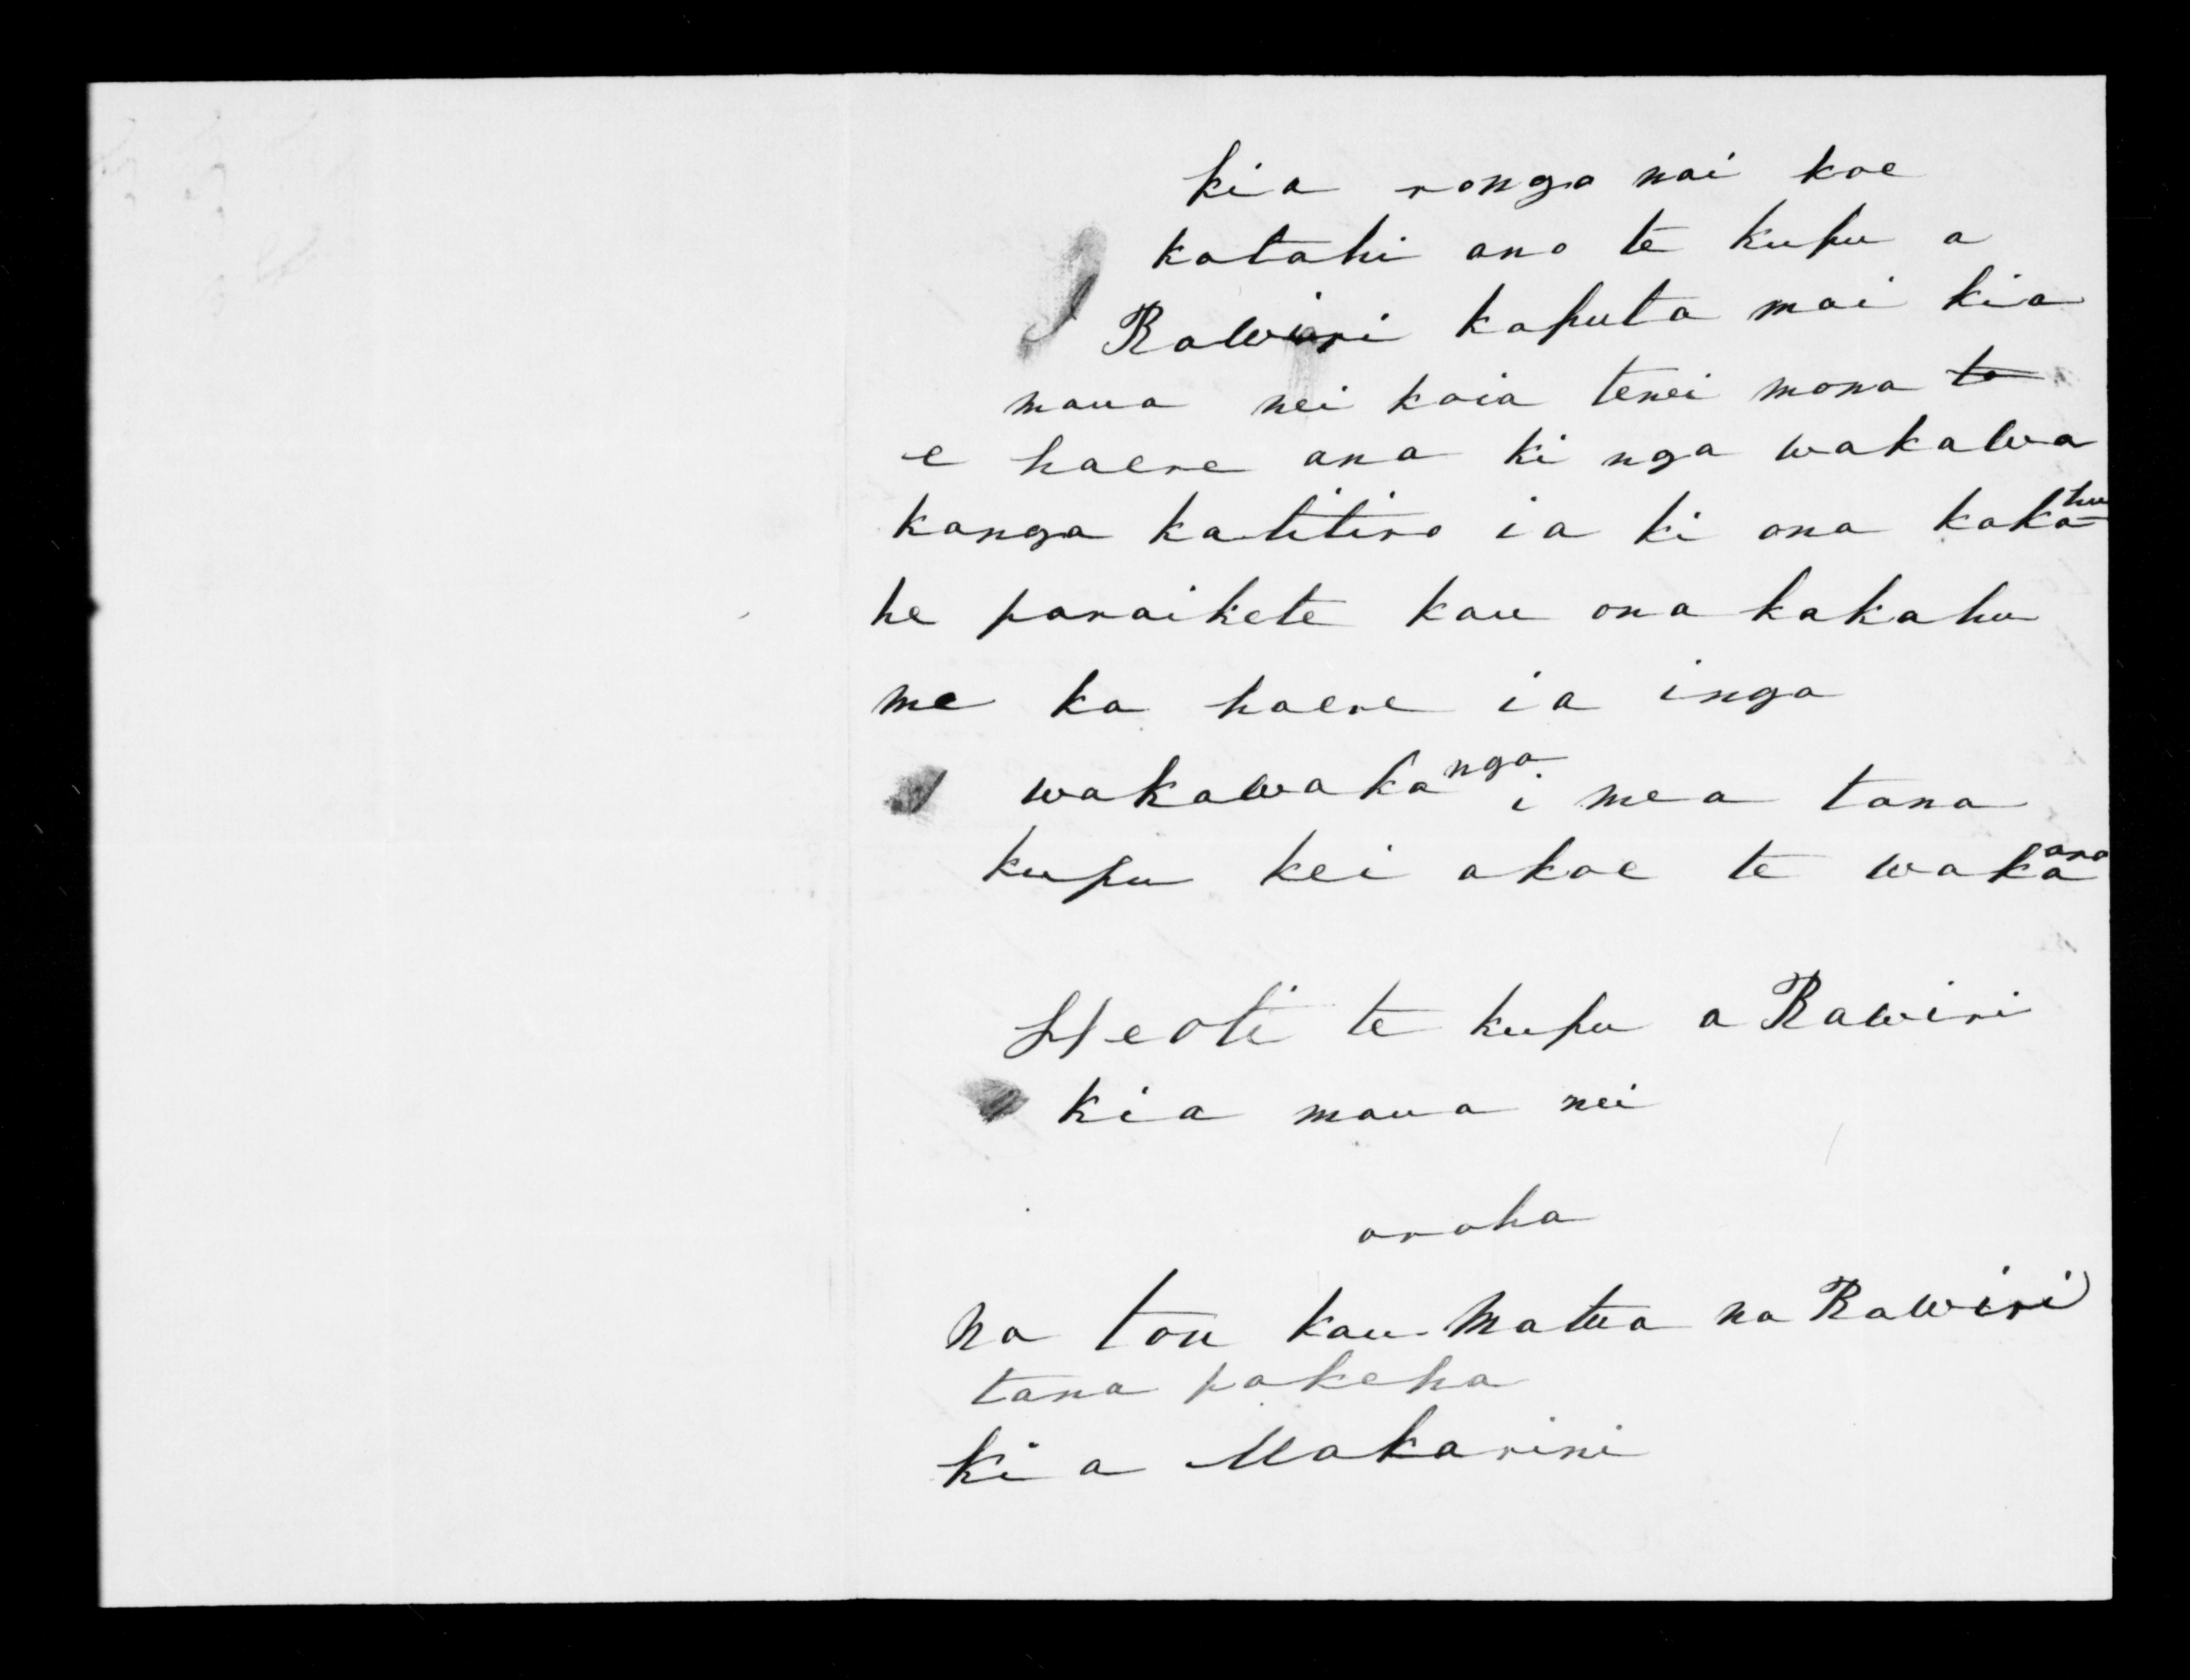 kia rongo mai koe
kotahi ano te kupu a
Rawiri kaputa mai kia
maua nei koia tenei mona to
e haere ana ki nga wakawa
kanga katitiro ia ki ona kakahu
he paraikete kau ona kakahu
me ka haere ia inga
wakawakanga i mea tana
kupu kei akoe te wakaaro
Heoti te kupu a Rawiri
kia maua nei
aroha
na tou kau-matua na Rawiri
tana pakeha
kia Makarini